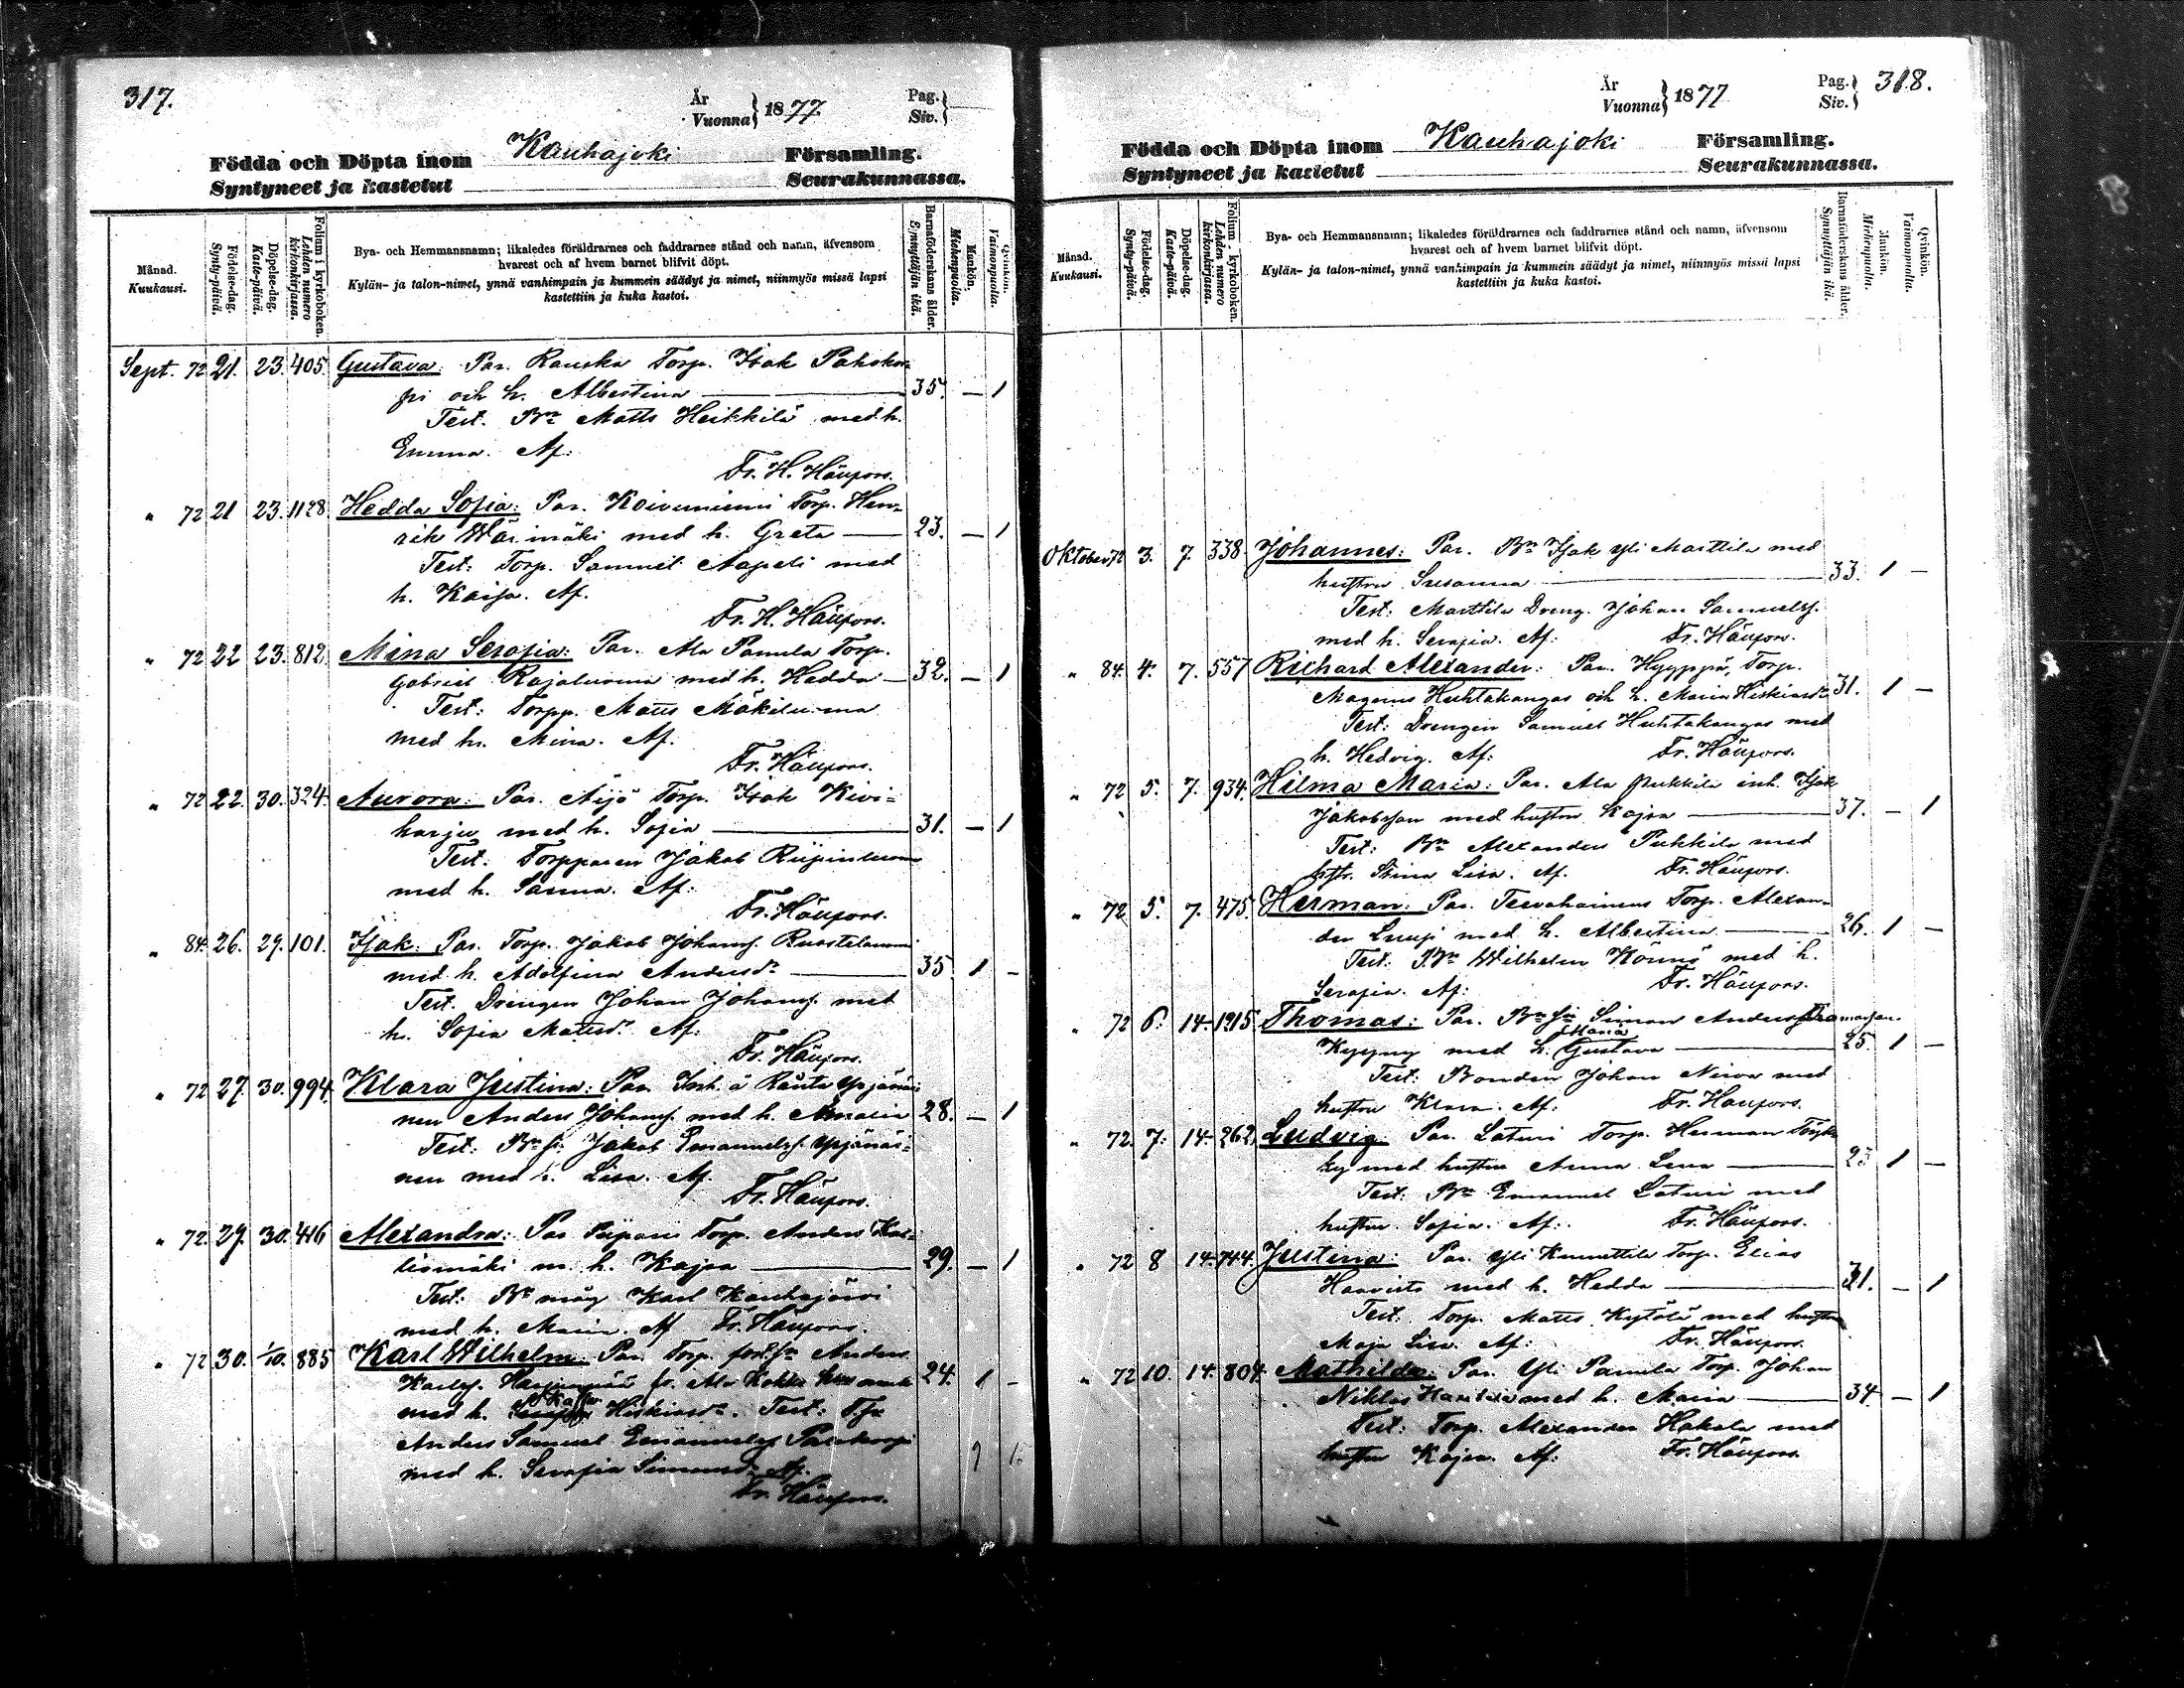 317.
År
Vuonna } 1877.
Pag.
Siv. }
Födda och Döpta inom Kauhajoki Församling.
Syntyneet ja kastetut Seurakunnassa.
Månad.
Kuukausi.
Födelse-dag.
Synty-päivä.
Döpelse-dag.
Kaste-päivä.
Folium i kyrkoboken.
Lehden numero kirkonkirjassa.
Bya- och Hemmansnamn; likaledes föräldrarnes och faddrarnes stånd och namn, äfvensom
hvarest och af hvem barnet blifvit döpt.
Kylän- ja talon-nimet, ynnä vanhimpain ja kummein säädyt ja nimet, niinmyös missä lapsi
kastettiin ja kuka kastoi.
Barnaföderskans ålder.
Synnyttäjän ikä.
Mankön.
Miehenpuolia.
Qvinkön.
Vaimonpuolia.
Sept. 72 21. 23. 405. Gustava: Par. Ranska Torp. Isak Pahokor-
pi och h. Albertina 35. — 1
Test. Bn Matts Heikkilä med h.
Emma. Af:
Fr. H. Häufors.
" 72 21 23. 1128 Hedda Sofia: Par. Koivuniemi Torp. Hen-
rik Wärimäki med h. Greta 23. — 1
Test: Torp. Samuel Aapeli med
h. Kaisa. Af.
Fr. H. Häufors.
" 72 22 23. 812. Mina Serafia: Par. Ala Panula Torp.
Gabriel Rajaluoma med h. Hedda 32. — 1
Test: Torpp. Matts Mäkiluoma
med h. Mina. Af.
Fr. Häufors.
" 72 22. 30. 324. Aurora: Par. Äijö Torp. Isak Kivi-
harju med h. Sofia 31. — 1
Test: Torpparen Jakob Riipinluoma
med h. Sanna. Af:
Fr. Häufors.
" 84. 26. 29. 101. Isak: Par. Torp. Jakob Johans. Ruostelammi
med h. Adolfina Andersdr 35 1 —
Test. Drengen Johan Johans. med
h. Sofia Mattsdr. Af:
Fr. Häufors.
" 72 27. 30. 994. Klara Justina: Par. Inh. å Ränts Ypjänäi-
nen Anders Johans. med h. Amalia 28. — 1
Test: Jakob Emanuels. Ypjänäi-
nen med h. Lisa. Af.
Fr. Häufors.
" 72. 27. 30. 416 Alexandra: Par. Piipari Torp. Anders Kal-
liomäki m. h. Kajsa 29. — 1
Test: Bn måg Karl Kauhajärvi
med h. Maria. Af Fr. Häufors.
" 72 30. 1/10. 885 Karl Wilhelm: Par. Torp. Anders
Karlss. Ala Kokko 24. 1 —
med h. Hiskiasdr. Test:
Anders Samuel Emanuels.
med h. Serafia Simonsdr Af.
Fr. Häufors.
År
Vuonna } 1877
Pag.
Siv. } 318.
Födda och Döpta inom Kauhajoki Församling.
Syntyneet ja kastetut Seurakunnassa.
Månad.
Kuukausi.
Födelse-dag.
Synty-päivä.
Döpelse-dag.
Kaste-päivä.
Folium i kyrkoboken.
Lehden numero kirkonkirjassa.
Bya- och Hemmansnamn; likaledes föräldrarnes och faddrarnes stånd och namn, äfvensom
hvarest och af hvem barnet blifvit döpt.
Kylän- ja talon-nimet, ynnä vanhimpain ja kummein säädyt ja nimet, niinmyös missä lapsi
kastettiin ja kuka kastoi.
Barnaföderskans ålder.
Synnyttäjän ikä.
Mankön.
Miehenpuolia.
Qvinkön.
Vaimonpuolia.
Oktober 72 3. 7. 338 Johannes: Par. Bn Isak Yli Marttila med
hustru Susanna 33. 1 —
Test: Marttila Dreng. Johan Samuelss.
med h. Serafia. Af: Fr. Häufors.
" 84. 4. 7. 557 Richard Alexander: Par. Hyyppä, Torp.
Magnus Huhtakangas och h. Maria Hiskiasdr 31. 1 —
Test: Drengen Samuel Huhtakangas med
h. Hedvig. Af: Fr. Häufors.
" 72 5. 7. 934. Hilma Maria: Par. Ala Pukkila inh. Isak
Jakobsson med hustru Kajsa 37. — 1
Test: Bn Alexander Pukkila med
hstr. Stina Lisa. Af. Fr. Häufors.
" 72 5. 7. 475. Herman: Par. Tervahainens Torp. Alexan-
der Luuji med h. Albertina 26. 1 —
Test: Wilhelm Könnö med h.
Serafia. Af: Fr. Häufors.
" 72 6. 14. 1215 Thomas: Par. Simon Anderss.
Maria
Kyyny med h. Gustava 25. 1 —
Test: Bonden Johan Nirva med
hustru Klara. Af: Fr. Häufors.
" 72. 7. 14. 262. Ludvig. Par. Laturi Torp. Herman
med hustru Anna Lena 23 1 —
Test: Bn Emanuel Laturi med
hustru Sofia. Af: Fr. Häufors.
" 72 8 14. 744. Justina: Par. Yli Knuuttila Torp. Elias
Haavisto med h. Hedda 31. — 1
Test: Torp. Matts Kytölä med hustru
Maja Lisa. Af: Fr. Häufors.
" 72 10. 14. 804. Mathilda: Par. Yli Panula Torp. Johan
Niklas med h. Maria 34 — 1
Test: Torp. Alexander Hakala med
hustru Kajsa. Af: Fr. Häufors.